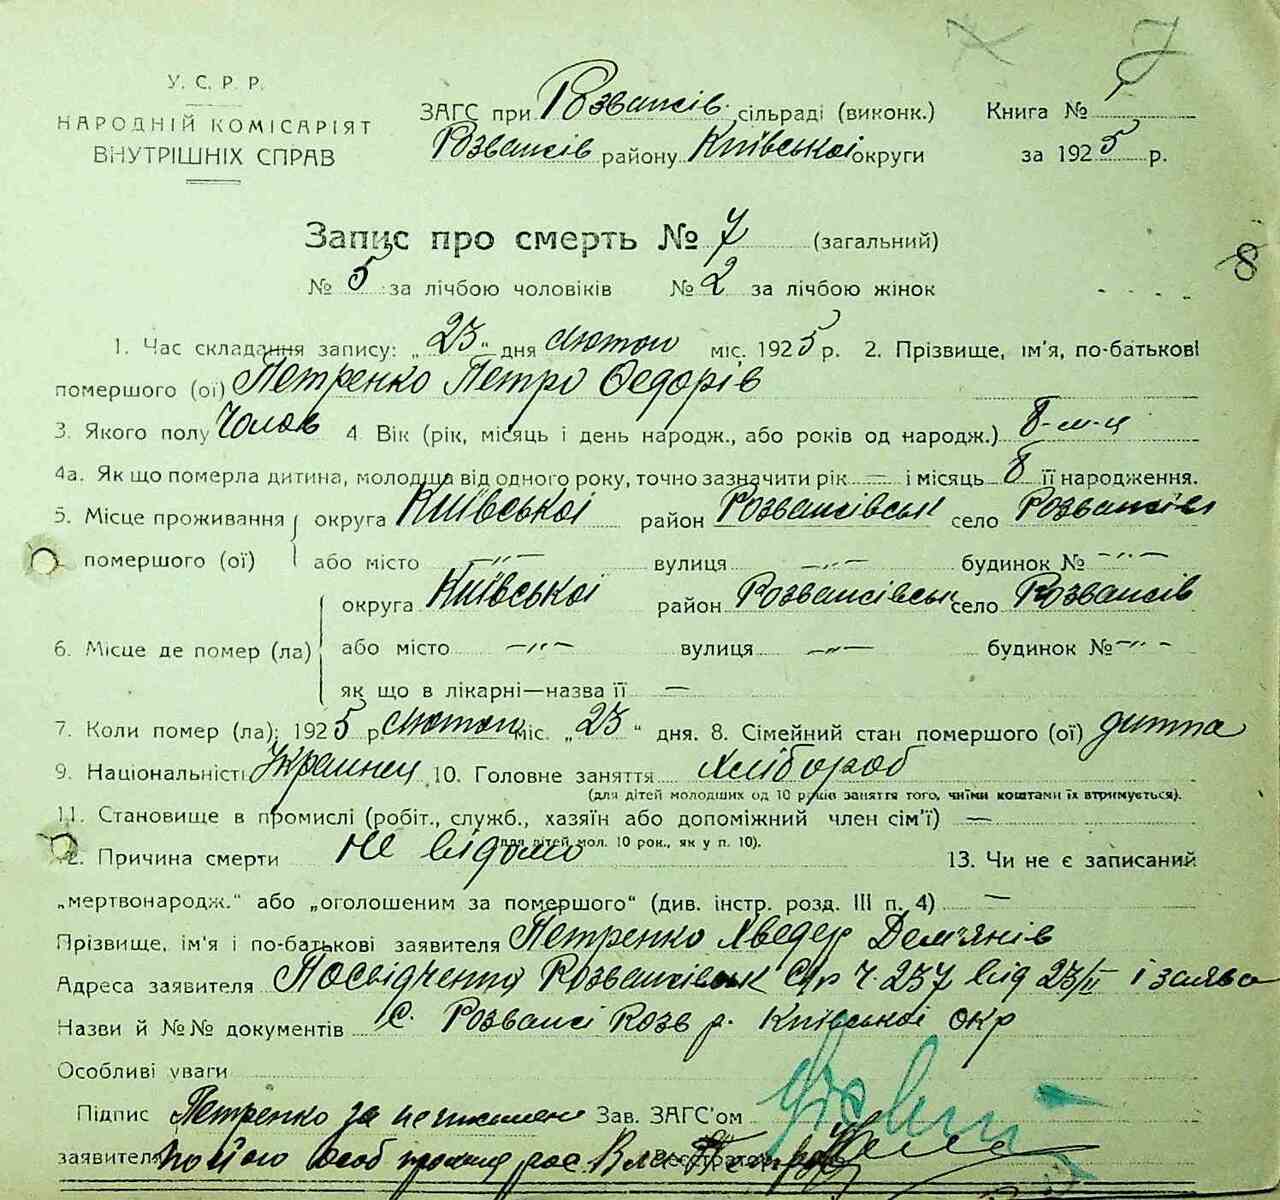 7
У. С. Р. Р.
НАРОДНІЙ КОМІСАРІЯТ
ВНУТРІШНІХ СПРАВ
ЗАГС при Розважів. сільраді (виконк.)
Розважів району Київської округи
Книга №
за 1925 р.
Запис про смерть № 7 (загальний)
8
№ 5 за лічбою чоловіків № 2 за лічбою жінок
1. Час складання запису: „23“ дня лютого міс. 1925 р. 2. Прізвище, ім'я, по-батькові
помершого (ої) Петренко Петро Федорів
3. Якого полу Чолов 4. Вік (рік, місяць і день народж., або років од народж.) 8-м-ц
4а. Як що померла дитина, молодша від одного року, точно зазначити рік — і місяць 8 її народження.
5. Місце проживання округа Київської район Розважівськ село Розважів
помершого (ої) або місто —„— вулиця —„— будинок № —„—
округа Київської район Розважівськ село Розважів
6. Місце де помер (ла) або місто —„— вулиця —„— будинок № —„—
як що в лікарні—назва її —
7. Коли помер (ла): 1925 р. лютого міс. „23“ дня. 8. Сімейний стан помершого (ої) дитина
9. Національність Украинец 10. Головне заняття хлібороб
(для дітей молодших од 10 років заняття того, чиїми коштами їх втримується).
11. Становище в промислі (робіт., служб., хазяїн або допоміжний член сім'ї) —
(для дітей мол. 10 рок., як у п. 10).
12. Причина смерти не відомо 13. Чи не є записаний
„мертвонародж.“ або „оголошеним за помершого“ (див. інстр. розд. III п. 4) —
Прізвище, ім'я і по-батькові заявителя Петренко Хведер Дем'янів
Адреса заявителя Посвідчення Розважівськ С/р Ч. 257 від 23/II і заява
Назви й №№ документів С. Розважі Розв р. Київської окр
Особливі уваги
Підпис Петренко за неписьмен Зав. ЗАГС'ом
заявителя по його особ